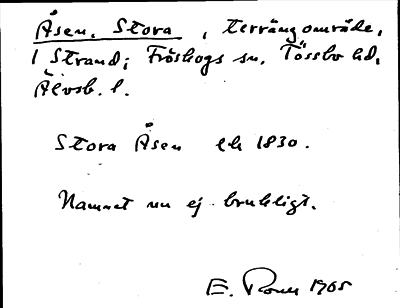 Åsen, Stora, terrängområde,
i Strand; Fröskogs sn, Tössbo hd,
Älvsb. l.
Stora Åsen lk 1830.
Namnet nu ej brukligt.
E. 1965